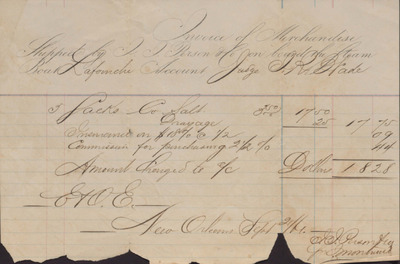 Invoice of Merchandise
Shipped by J. S. Person & Co on board the Steam
Boat Lafourche Account Judge Slade
5 Sacks Co. Salt 350 17 50
Drayage 25 17 75
Insurance on $ @ 1/2 09
Commission for purchasing 2 1/2 % 44
Amount Charged to a/c Dollars 18 28
E & O. E.
New Orleans Sept